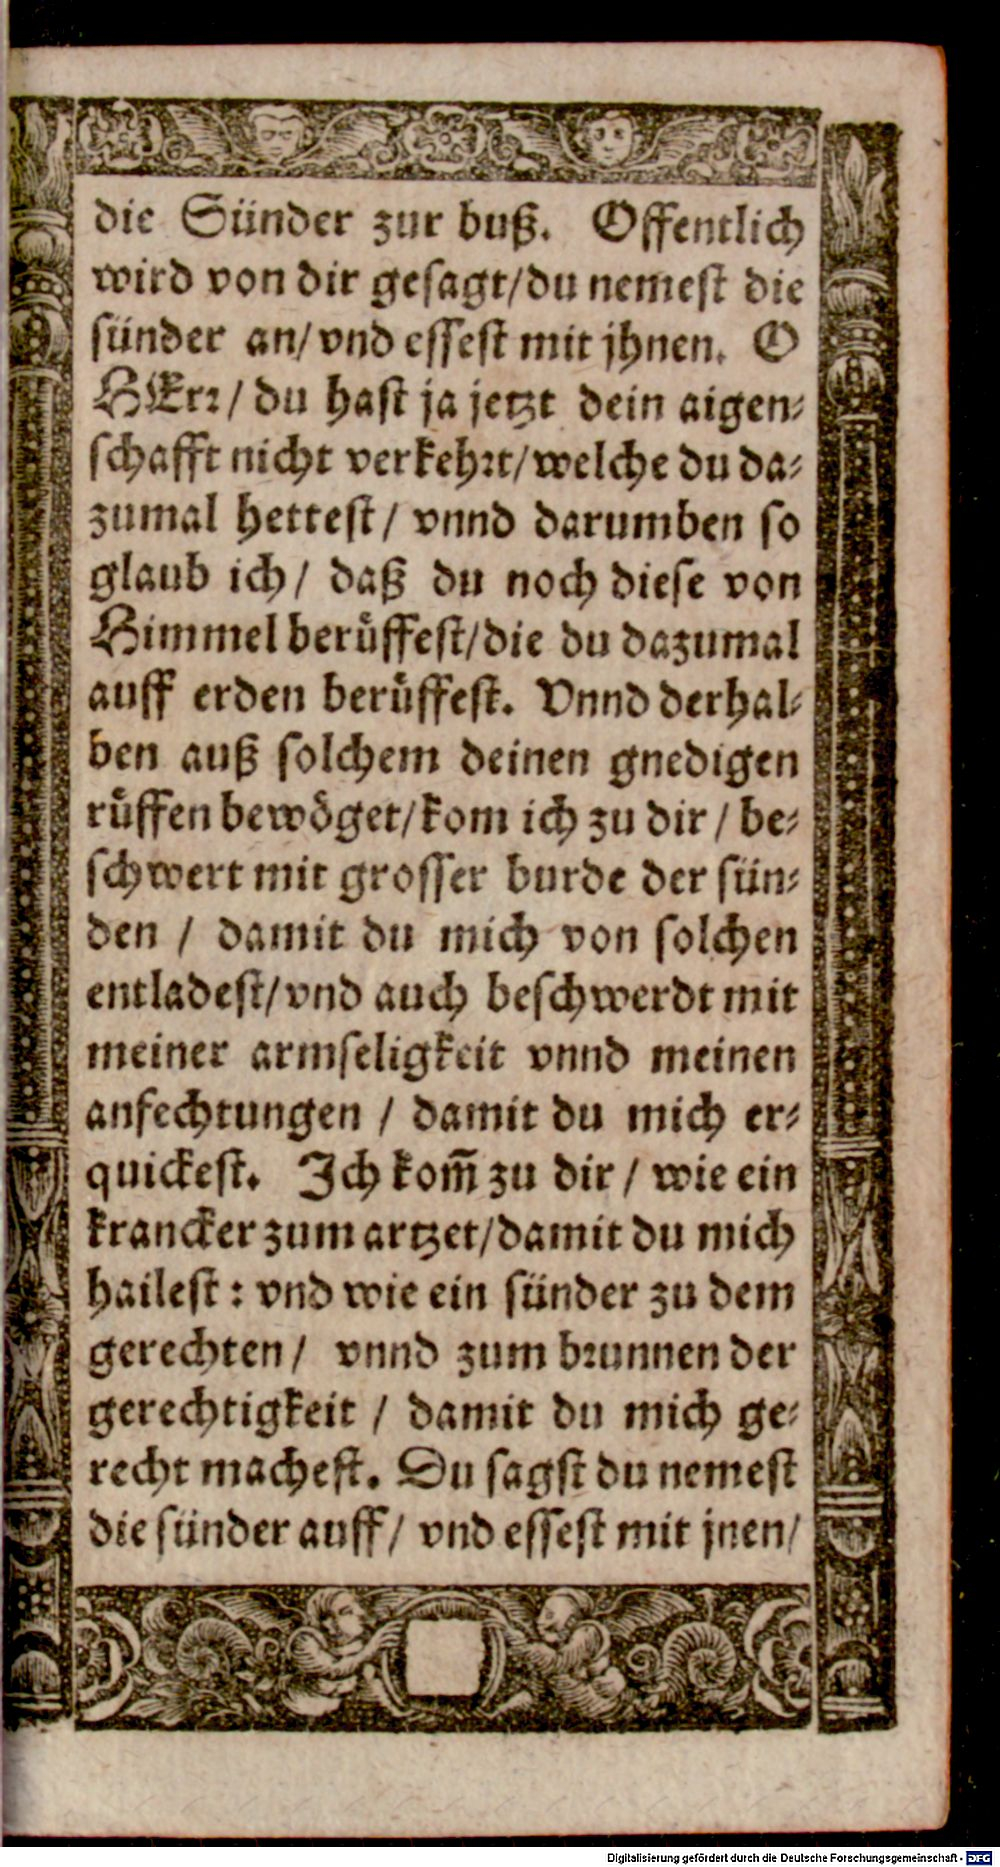 die Sünder zur buß. Offentlich
wird von dir gesagt/du nemest die
sünder an/vnd essest mit jhnen. O
HErr/du hast ja jetzt dein aigen-
schafft nicht verkehrt/welche du da-
zumal hettest/vnnd darumben so
glaub ich/daß du noch diese von
Himmel berůffest/die du dazumal
auff erden berůffest. Vnnd derhal-
ben auß solchem deinen gnedigen
růffen bewöget/kom ich zu dir/be-
schwert mit grosser burde der sün-
den/damit du mich von solchen
entladest/vnd auch beschwerdt mit
meiner armseligkeit vnnd meinen
anfechtungen/damit du mich er-
quickest. Ich kom̃ zu dir/wie ein
krancker zum artzet/damit du mich
hailest: vnd wie ein sünder zu dem
gerechten/vnnd zum brunnen der
gerechtigkeit/damit du mich ge-
recht machest. Du sagst du nemest
die sünder auff/vnd essest mit jnen/
Digitalisierung gefördert durch die Deutsche Forschungsgemeinschaft - DFG